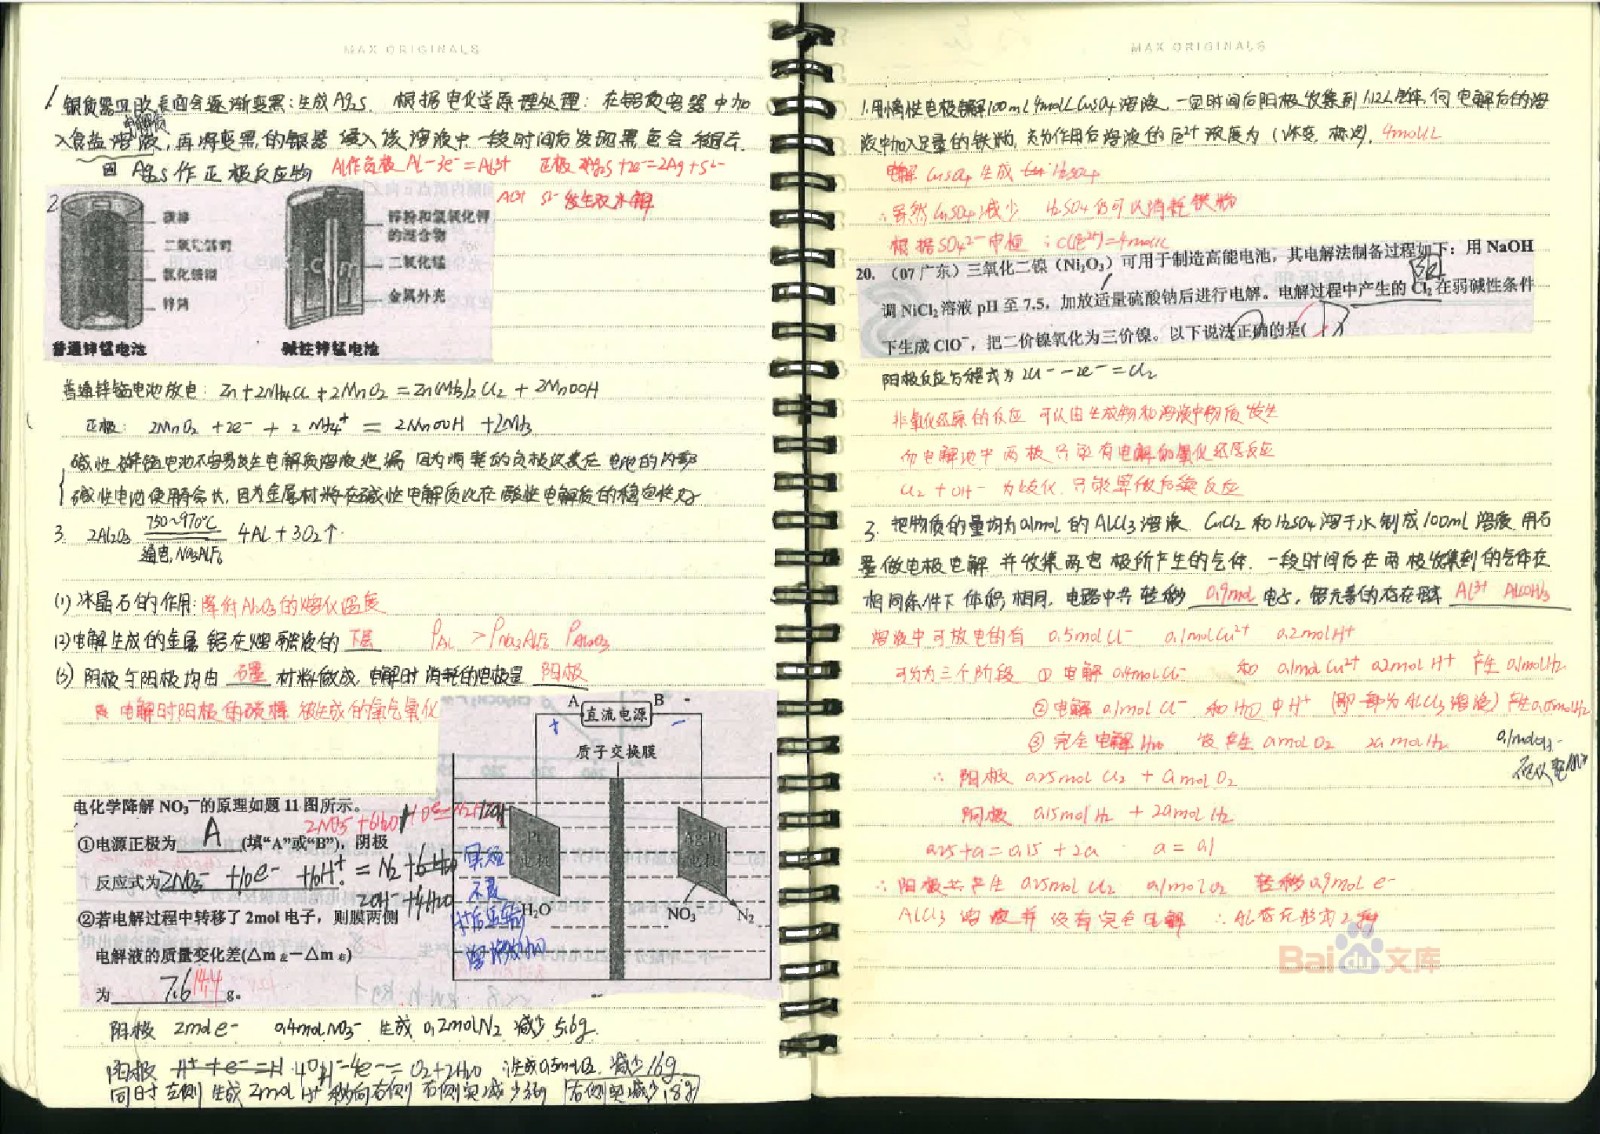 MAX ORIGINALS
1. 银质器皿日久表面会逐渐变黑:生成Ag₂S. 根据电化学原理处理: 在铝质容器中加
入食盐溶液, 再将变黑的银器浸入该溶液中 一段时间后发现黑色会褪去.
因 Ag₂S 作正极反应物 Al作负极 Al-3e⁻=Al³⁺ 正极 Ag₂S+2e⁻=2Ag+S²⁻
Al³⁺ S²⁻ 发生双水解
2.
碳棒
二氧化锰
氯化铵糊
锌筒
普通锌锰电池
锌粉和氢氧化钾
的混合物
二氧化锰
金属外壳
碱性锌锰电池
普通锌锰电池放电: Zn+2NH₄Cl+2MnO₂=Zn(NH₃)₂Cl₂+2MnOOH
正极: 2MnO₂+2e⁻+2NH₄⁺=2MnOOH+2NH₃
碱性锌锰电池不容易发生电解质溶液泄漏 因为消耗的负极改装在电池的内部
碱性电池使用寿命长, 因为金属材料在碱性电解质比在酸性电解质的稳定性好
3. 2Al₂O₃ 750~970℃ 通电,Na₃AlF₆ 4Al+3O₂↑
(1)冰晶石的作用: 降低Al₂O₃的熔化温度
(2)电解生成的金属铝在熔融液的 下层 ρAl > ρNa₃AlF₆ ρAl₂O₃
(3) 阴极与阳极均由 石墨 材料做成, 电解时消耗的电极是 阳极
电解时阳极的碳棒 被生成的氧气氧化
A 直流电源 B -
+ -
质子交换膜
电化学降解 NO₃⁻的原理如题 11 图所示。
2NO₃⁻+6H₂O+10e⁻=N₂+12OH⁻
①电源正极为 A (填“A”或“B”), 阴极
反应式为 2NO₃⁻+10e⁻+12H⁺=N₂+6H₂O
②若电解过程中转移了 2mol 电子，则膜两侧
电解液的质量变化差(Δm左-Δm右)
为 7.6 14.4 g。
Pt
电极
Ag-Pt
电极
H₂O
NO₃⁻
N₂
阴极 2mol e⁻ 0.4molNO₃⁻ 生成 0.2molN₂ 减少 5.6g.
阳极 H⁺+e⁻=H 4OH⁻-4e⁻=O₂+2H₂O 生成0.5molO₂. 减少16g
同时左侧 生成 2mol H⁺ 移向右侧 右侧实减少3.6g 左侧实减少18g
MAX ORIGINALS
1. 用惰性电极电解100mL 4mol/L CuSO₄ 溶液. 一定时间后阳极收集到1.12L气体. 向电解后的溶
液中加入足量的铁粉, 充分作用后溶液的Fe²⁺浓度为 (体变, 标况). 4mol/L
电解 CuSO₄ 生成 H₂SO₄
∴虽然CuSO₄减少 H₂SO₄仍可以消耗铁粉
根据SO₄²⁻守恒 ∴c(Fe²⁺)=4mol/L
20. （07 广东）三氧化二镍（Ni₂O₃）可用于制造高能电池，其电解法制备过程如下：用 NaOH
调 NiCl₂ 溶液 pH 至 7.5，加放适量硫酸钠后进行电解。电解过程中产生的 Cl₂ 在弱碱性条件
下生成 ClO⁻，把二价镍氧化为三价镍。以下说法正确的是(
阳极反应方程式为 2Cl⁻-2e⁻=Cl₂
非氧化还原的反应 可以由生成物和溶液中物质发生
而电解池中两极只写有电解的氧化还原反应
Cl₂+OH⁻ 只能算做后续反应
3. 把物质的量均为0.1mol的AlCl₃溶液 CuCl₂ 和H₂SO₄溶于水制成100ml溶液 用石
墨做电极电解 并收集两电极所产生的气体. 一段时间后在两极收集到的气体在
相同条件下体积相同, 电路中共转移 0.9mol 电子, 铝元素的存在形式 Al³⁺ Al(OH)₃
溶液中可放电的有 0.5molCl⁻ 0.1molCu²⁺ 0.2molH⁺
可分为三个阶段 ① 电解 0.4molCl⁻ 和 0.1molCu²⁺ 0.2molH⁺ 产生 0.1molH₂
②电解 0.1mol Cl⁻ 和H₂O中H⁺ (即一部分AlCl₃溶液) 产生0.05molH₂
③ 完全电解H₂O 发产生 amolO₂ 2amolH₂
∴ 阳极 0.25mol Cl₂ + amol O₂
阴极 0.15mol H₂ + 2amol H₂
0.25+a=0.15+2a a=0.1
∴ 阳极共产生 0.25mol Cl₂ 0.1molO₂ 转移0.9mol e⁻
AlCl₃ 溶液并没有完全电解 ∴Al存在形式为2种
Bai du 文库